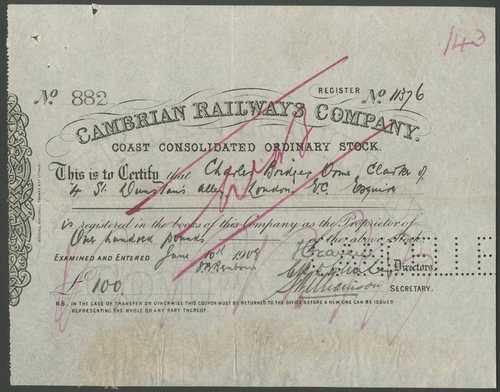 143
No 882
REGISTER No 11376
CAMBRIAN RAILWAYS COMPANY.
COAST CONSOLIDATED ORDINARY STOCK.
This is to Certify that Charles Bridger Orme Clarke of
4 St. Dunstan's Alley London E.C. Esquire
is registered in the books of this Company as the Proprietor of
One hundred pounds of the above Stock.
EXAMINED AND ENTERED June 10th 1908
Directors.
£100.
SECRETARY.
N.B. IN THE CASE OF TRANSFER OR OTHERWISE THIS COUPON MUST BE RETURNED TO THE OFFICE BEFORE A NEW ONE CAN BE ISSUED
REPRESENTING THE WHOLE OR ANY PART THEREOF.